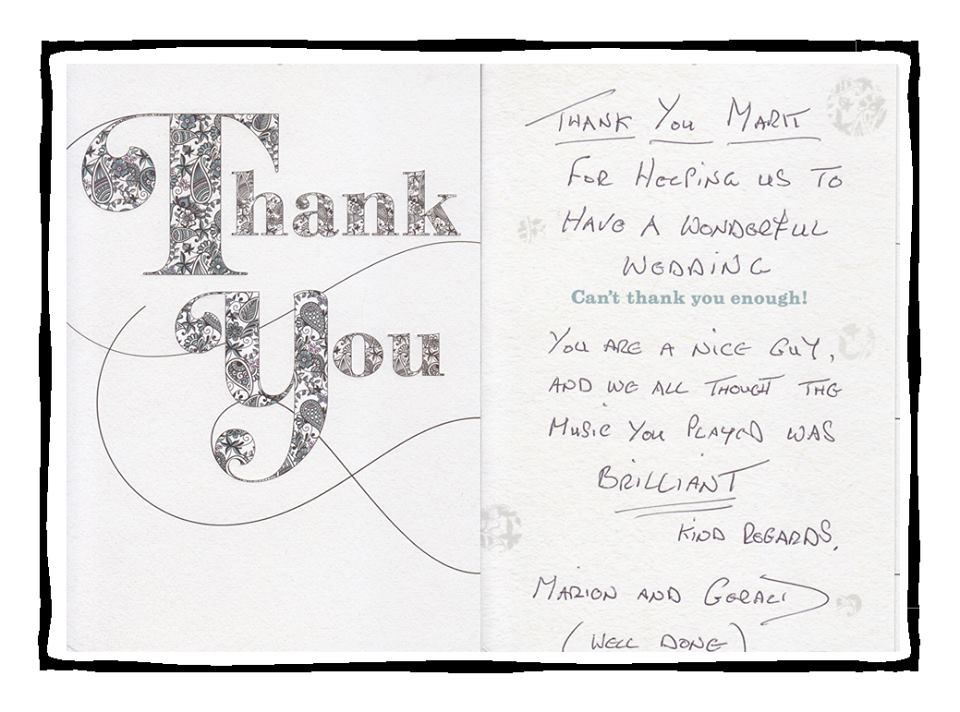 Thank
You
THANK YOU MARK
FOR HELPING US TO
HAVE A WONDERFUL
WEDDING
Can't thank you enough!
YOU ARE A NICE GUY,
AND WE ALL THOUGHT THE
MUSIC YOU PLAYED WAS
BRILLIANT
KIND REGARDS,
MARION AND GERALD
(WELL DONE)